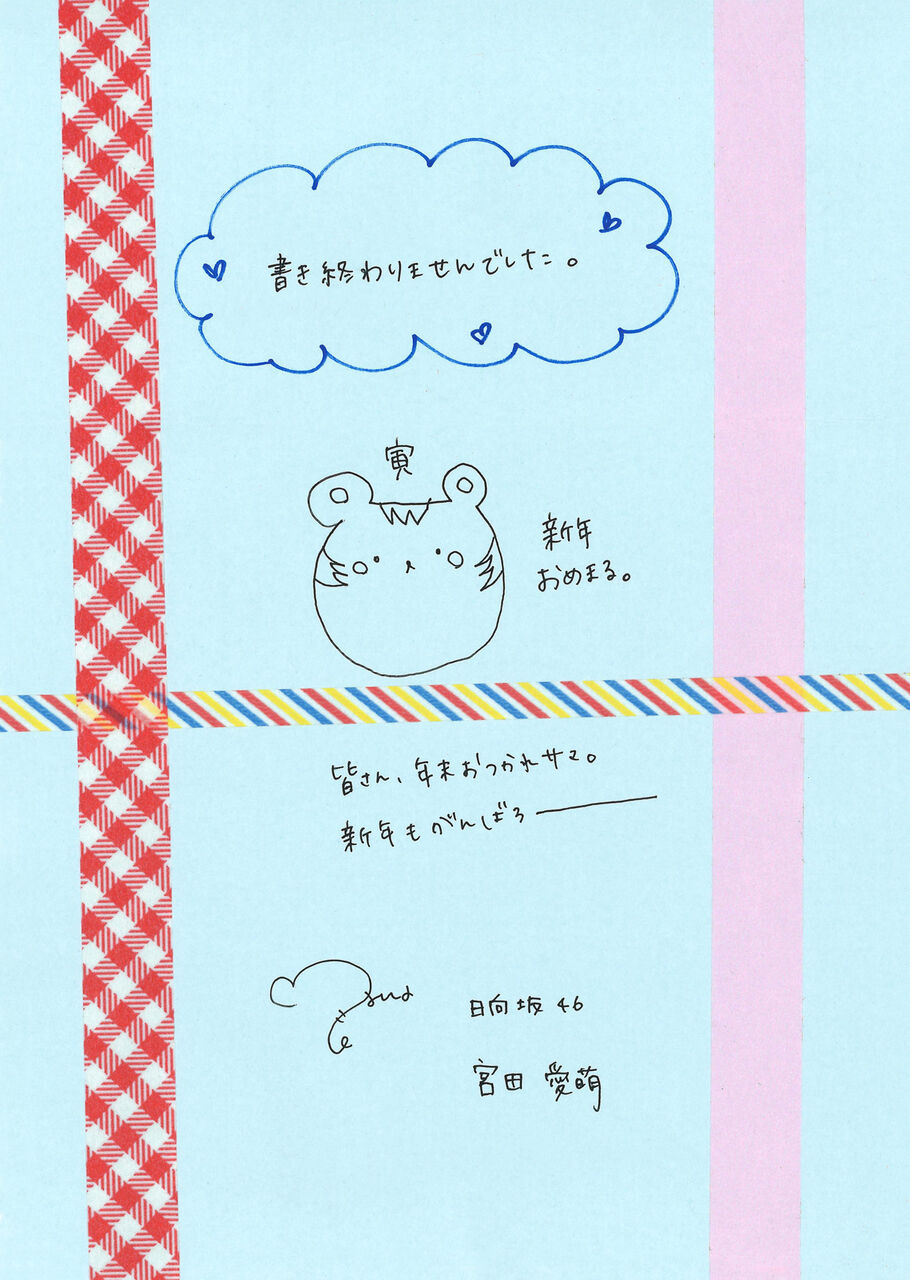 書き終わりませんでした。
寅
新年
おめまる。
皆さん、年末おつかれサマ。
新年もがんばろ―
日向坂46
宮田 愛萌